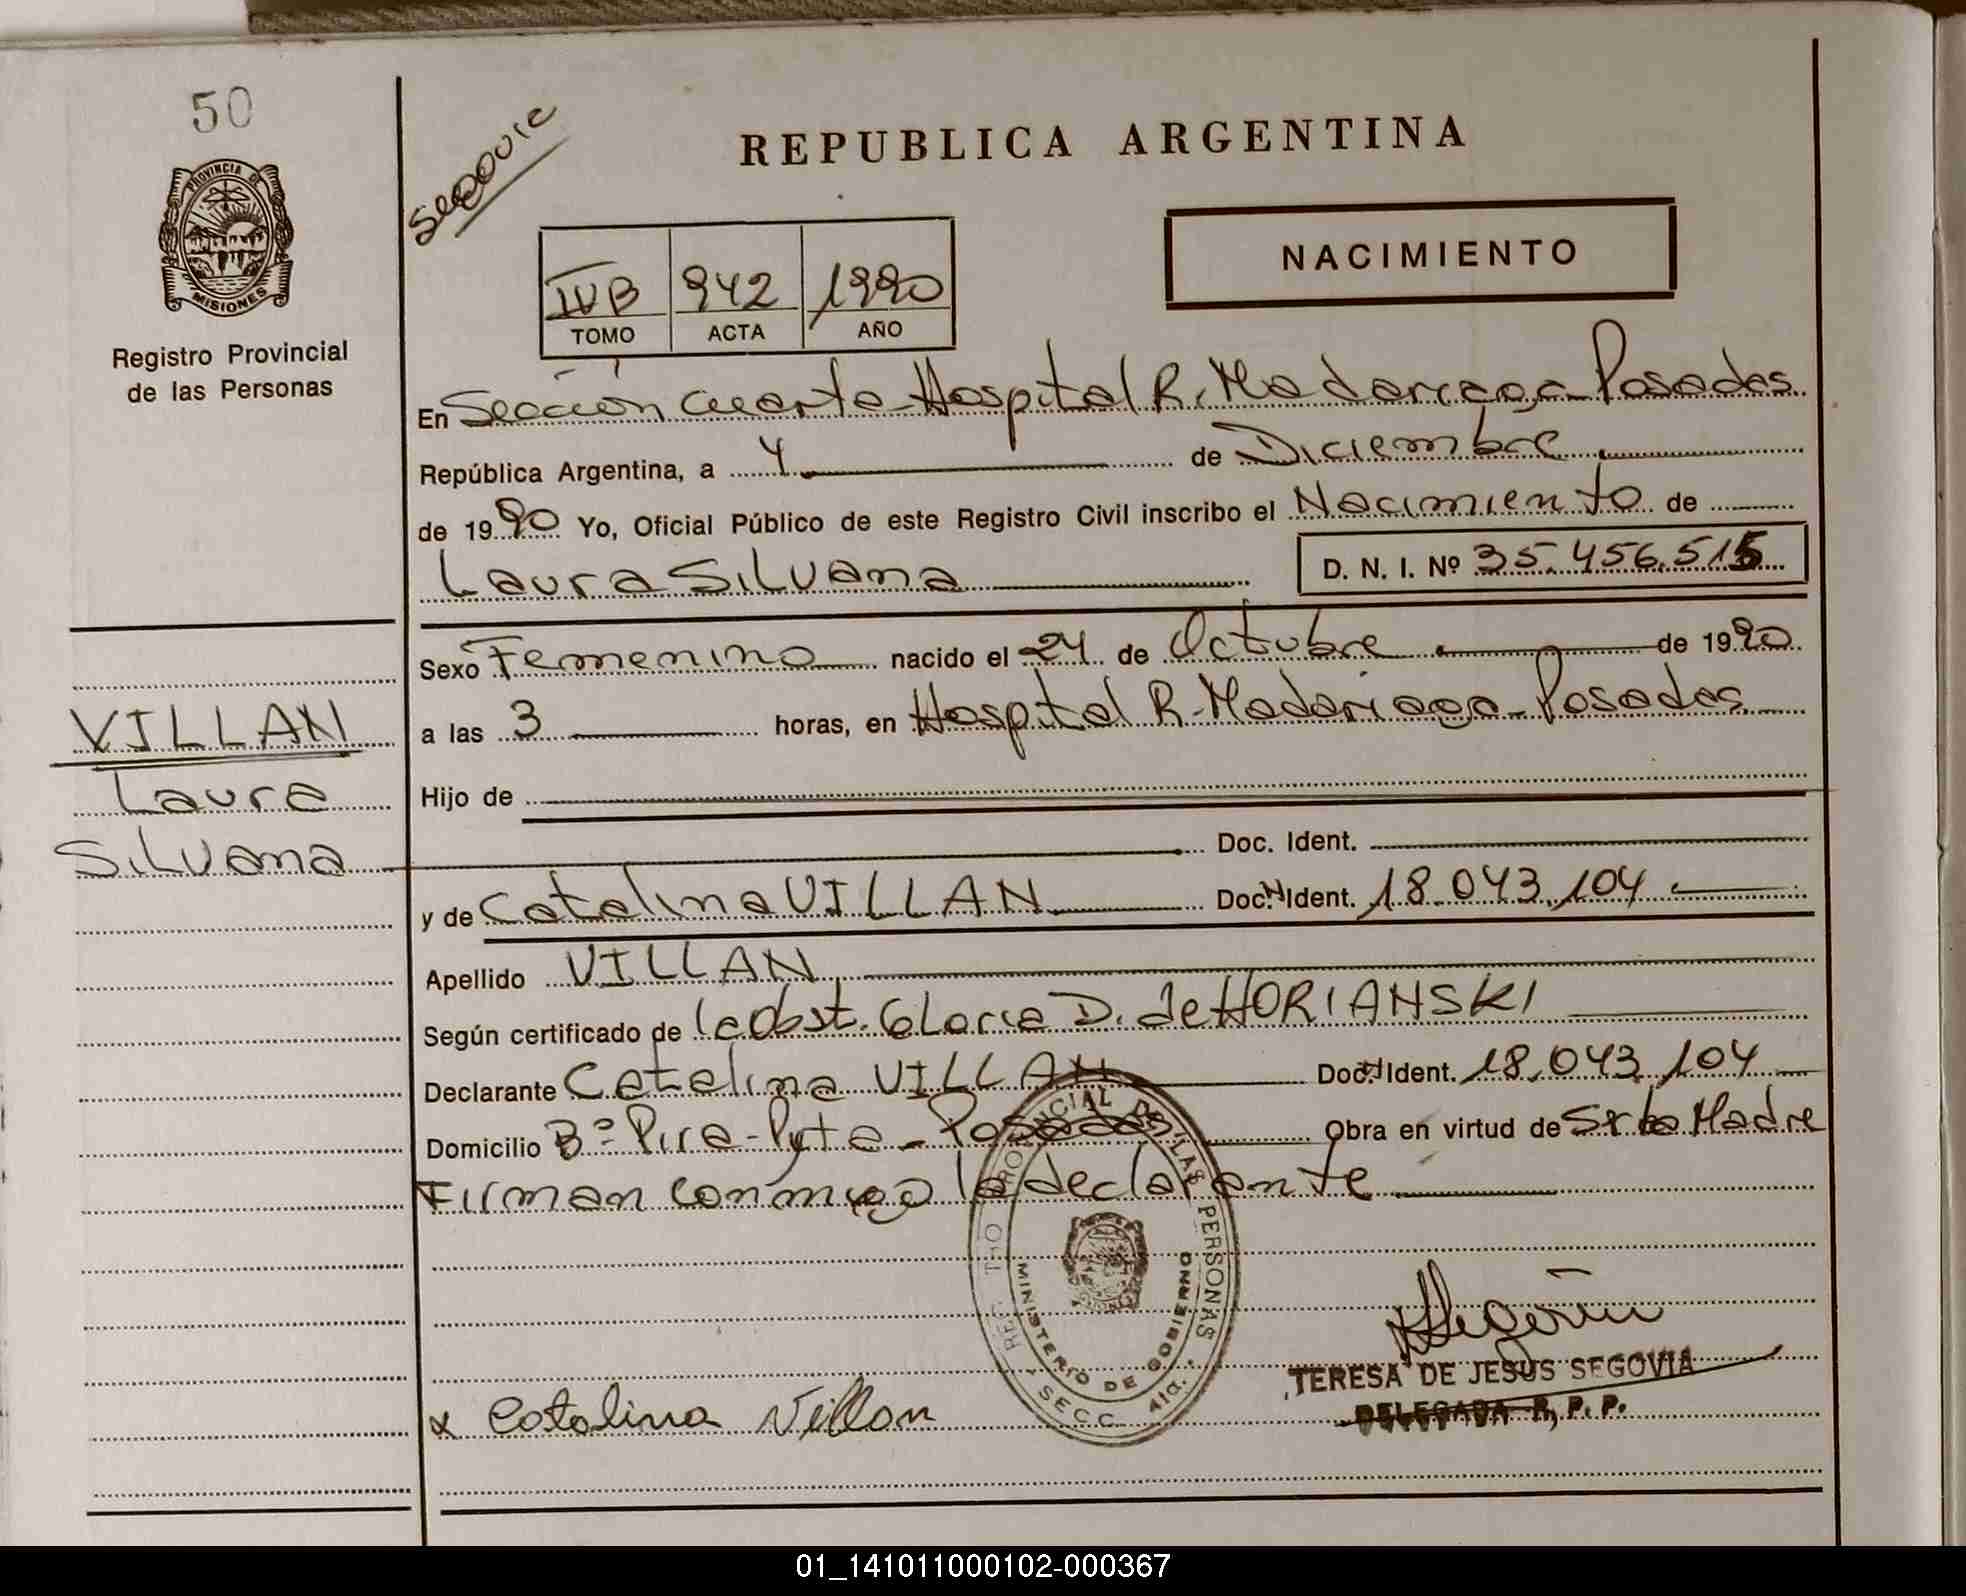 50
PROVINCIA DE
MISIONES
Registro Provincial
de las Personas
REPUBLICA ARGENTINA
NACIMIENTO
IVB 942 1990
TOMO ACTA AÑO
En Sección Cuarta-Hospital R. Madariaga-Posadas.
República Argentina, a 4 de Diciembre
de 1990 Yo, Oficial Público de este Registro Civil inscribo el Nacimiento de
Laura Silvana D. N. I. Nº 35.456.515
Sexo Femenino nacido el 24 de Octubre de 1990
a las 3 horas, en Hospital R. Madariaga-Posadas
Hijo de
Doc. Ident.
y de Catalina VILLAN Doc. Ident. 18.043.104
Apellido VILLAN
Según certificado de la Obst. Gloria D. de HORIANSKI
Declarante Catalina VILLAN Doc. Ident. 18.043.104
Domicilio Bº Pira-Pyta-Posadas Obra en virtud de Sr la Madre
Firman conmigo la declarante
VILLAN
Laura
Silvana
REGISTRO PROVINCIAL DE LAS PERSONAS
MINISTERIO DE GOBIERNO
SECC. 4ta.
TERESA DE JESUS SEGOVIA
DELEGADA R. P. P.
x Catalina Villan
01_141011000102-000367